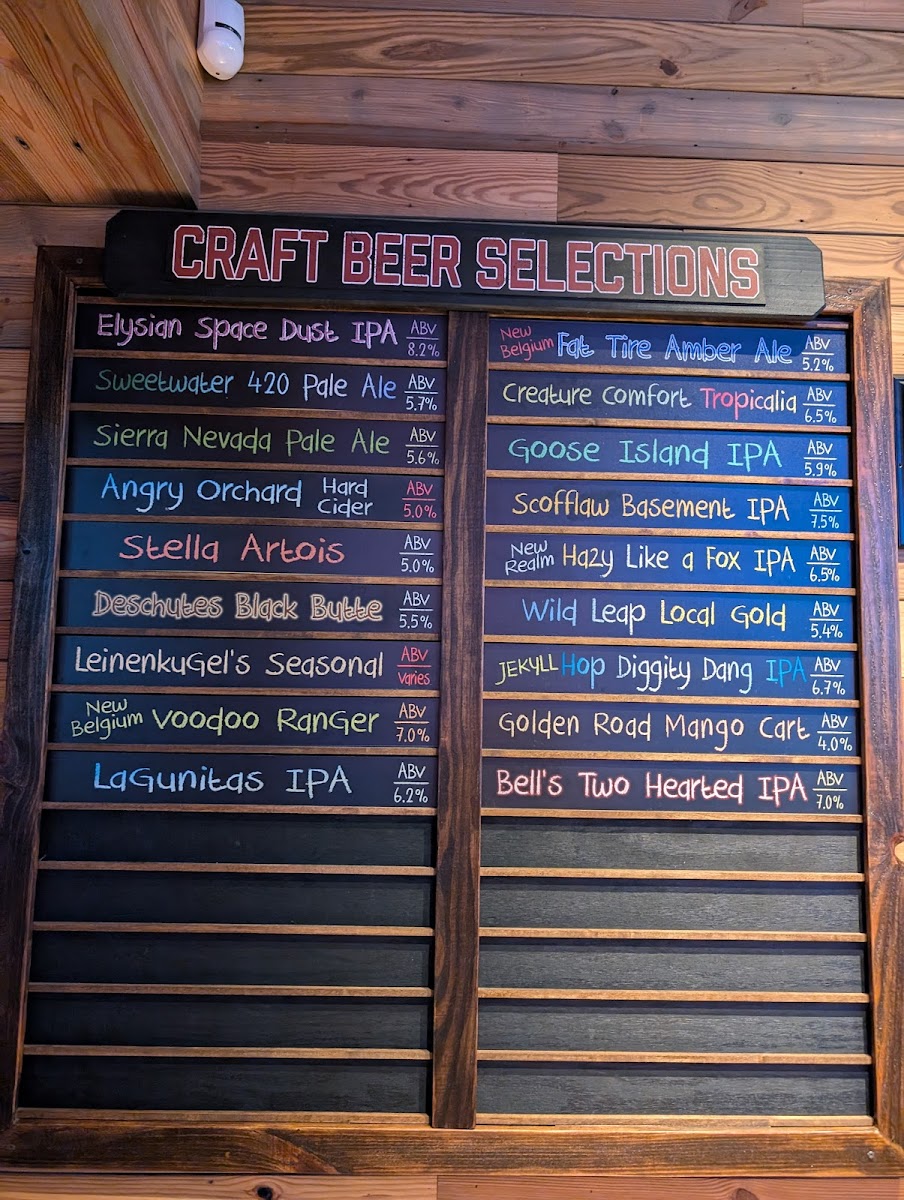 CRAFT BEER SELECTIONS
Elysian Space Dust IPA ABV 8.2%
Sweetwater 420 Pale Ale ABV 5.7%
Sierra Nevada Pale Ale ABV 5.6%
Angry Orchard Hard Cider ABV 5.0%
Stella Artois ABV 5.0%
Deschutes Black Butte ABV 5.5%
Leinenkugel's Seasonal ABV varies
New Belgium Voodoo Ranger ABV 7.0%
Lagunitas IPA ABV 6.2%
New Belgium Fat Tire Amber Ale ABV 5.2%
Creature Comfort Tropicalia ABV 6.5%
Goose Island IPA ABV 5.9%
Scofflaw Basement IPA ABV 7.5%
New Realm Hazy Like a Fox IPA ABV 6.5%
Wild Leap Local Gold ABV 5.4%
JEKYLL Hop Diggity Dang IPA ABV 6.7%
Golden Road Mango Cart ABV 4.0%
Bell's Two Hearted IPA ABV 7.0%